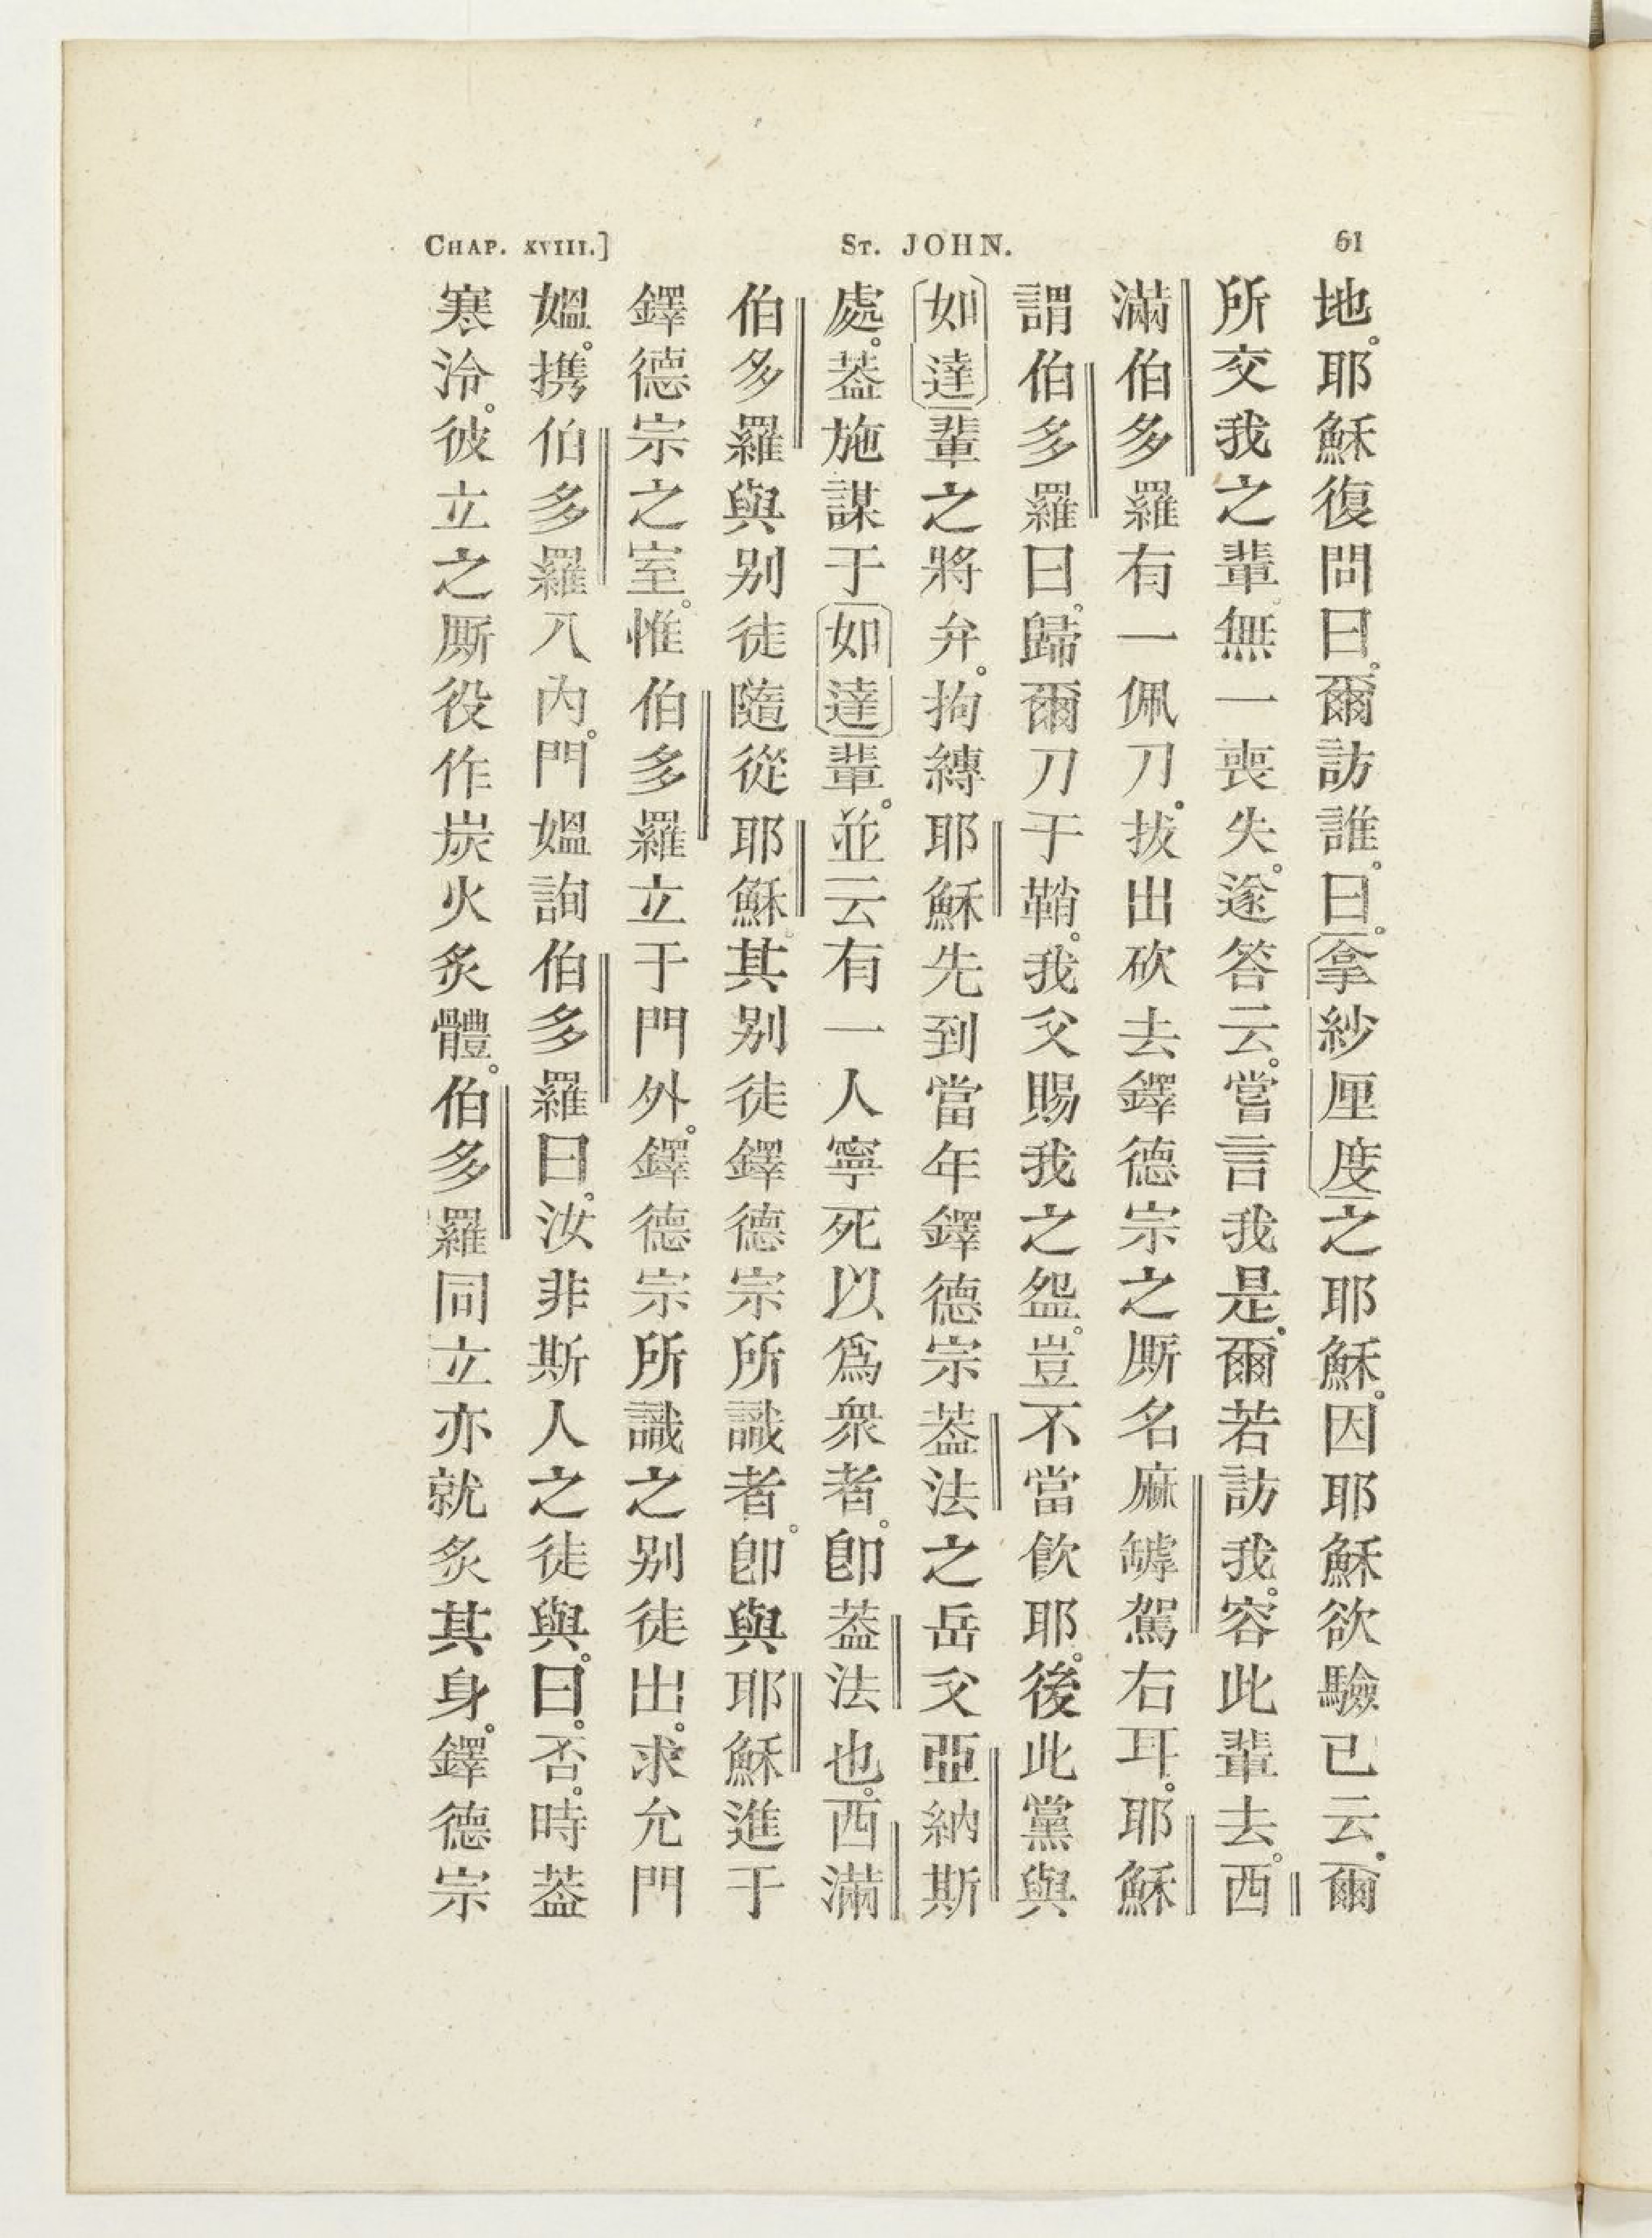 CHAP. XVIII.] ST. JOHN. 61
地。耶穌復問曰。爾訪誰。曰。拿紗厘度之耶穌。因耶穌欲驗已云。爾
所交我之輩。無一喪失。遂答云。嘗言我是。爾若訪我。容此輩去。西
滿伯多羅有一佩刀。拔出砍去鐸德宗之厮名麻罅駕右耳。耶穌
謂伯多羅曰。歸爾刀于鞘。我父賜我之盌。豈不當飲耶。後此黨與
如達輩之將弁。拘縛耶穌先到當年鐸德宗葢法之岳父亞納斯
處。葢施謀于如達輩。並云有一人寧死以爲衆者。卽葢法也。西滿
伯多羅與别徒隨從耶穌。其别徒鐸德宗所識者。卽與耶穌進于
鐸德宗之室。惟伯多羅立于門外。鐸德宗所識之别徒出。求允門
媼。携伯多羅入內。門媼詢伯多羅曰。汝非斯人之徒與。曰。否。時葢
寒泠。彼立之厮役作炭火炙體。伯多羅同立亦就炙其身。鐸德宗